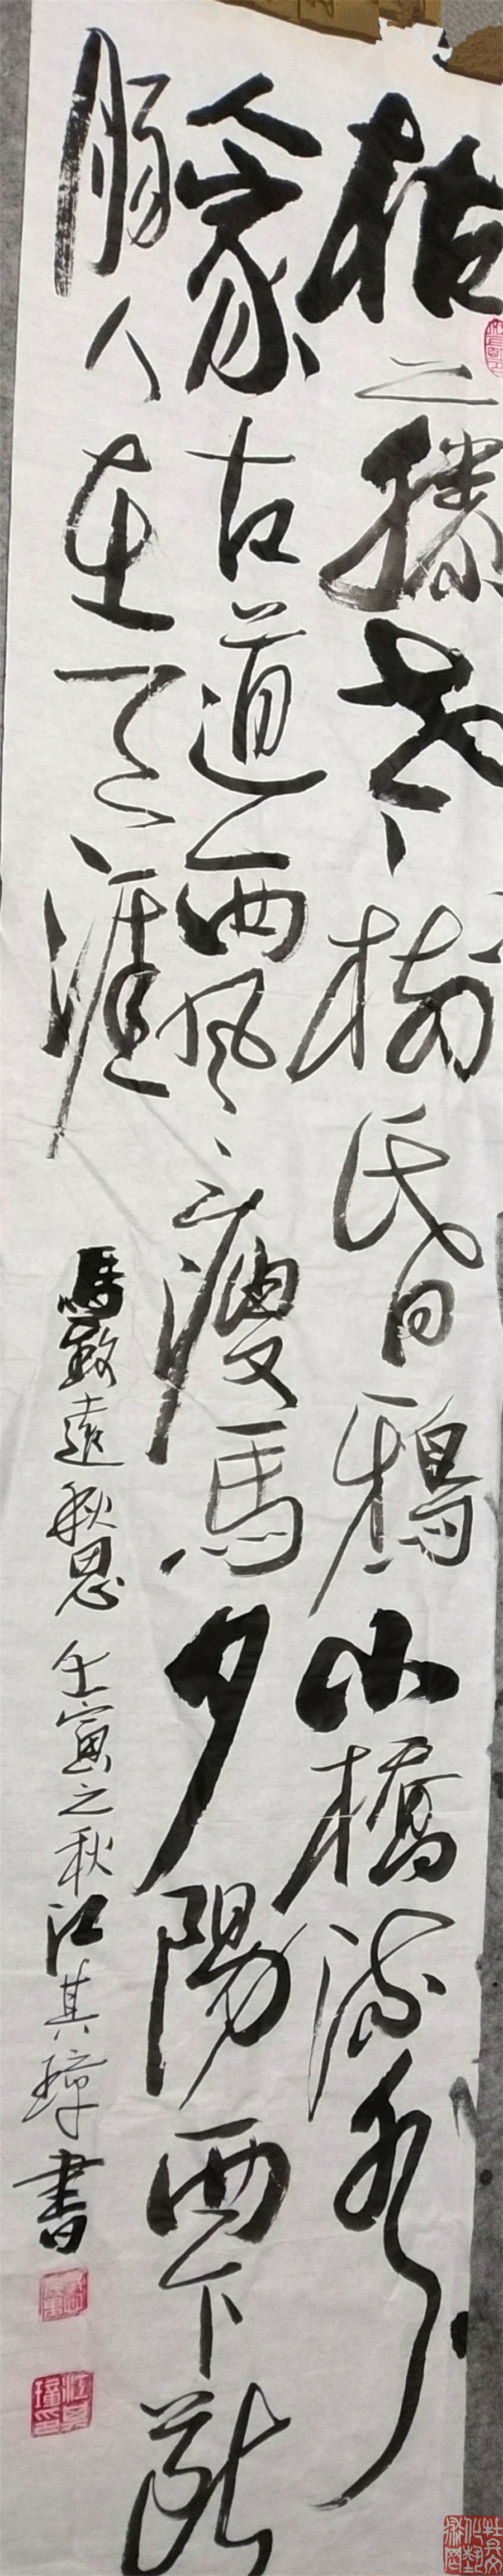 枯藤老樹昏鴉小橋流水
人家古道西風瘦馬夕陽西下斷
腸人在天涯
馬致遠秋思 壬寅之秋江其璋書